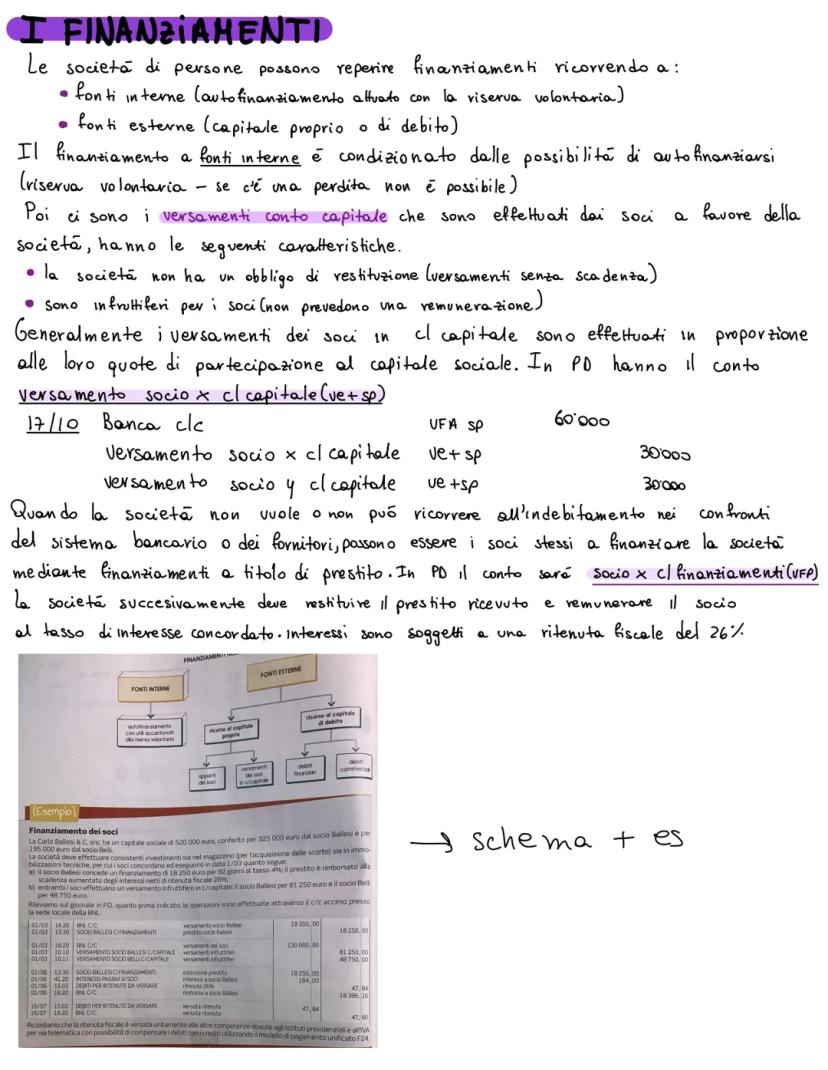 I FINANZIAMENTI
Le società di persone possono reperire finanziamenti ricorrendo a:
• fonti interne (autofinanziamento attuato con la riserva volontaria)
• fonti esterne (capitale proprio o di debito)
Il finanziamento a fonti interne è condizionato dalle possibilità di autofinanziarsi
(riserva volontaria - se c'è una perdita non è possibile)
Poi ci sono i versamenti conto capitale che sono effettuati dai soci a favore della
società, hanno le seguenti caratteristiche.
• la società non ha un obbligo di restituzione (versamenti senza scadenza)
• sono infruttiferi per i soci (non prevedono una remunerazione)
Generalmente i versamenti dei soci in c/ capitale sono effettuati in proporzione
alle loro quote di partecipazione al capitale sociale. In PD hanno il conto
versamento socio x c/ capitale (ve+ sp)
17/10 Banca c/c UFA sp 60'000
versamento socio x c/ capitale ve+ sp 30'000
versamento socio y c/ capitale ve +sp 30'000
Quando la società non vuole o non può ricorrere all'indebitamento nei confronti
del sistema bancario o dei fornitori, possono essere i soci stessi a finanziare la società
mediante finanziamenti a titolo di prestito. In PD il conto sarà socio x c/ finanziamenti (VFP)
la società succesivamente deve restituire il prestito ricevuto e remunerare il socio
al tasso di interesse concordato. Interessi sono soggetti a una ritenuta fiscale del 26%
FONTI INTERNE
FONTI ESTERNE
autofinanziamento
con utili accantonati
alla riserva volontaria
ricorso al capitale
proprio
ricorso al capitale
di debito
apporti
dei soci
versamenti
dei soci
in c/capitale
debiti
finanziari
debiti
commerciali
(Esempio)
→ schema + es
Finanziamento dei soci
La Carlo Ballesi & C. snc ha un capitale sociale di 520 000 euro, conferito per 325 000 euro dal socio Ballesi e per
195 000 euro dal socio Belli.
La società deve effettuare consistenti investimenti sia nel magazzino (per l'acquisizione delle scorte) sia in immo-
bilizzazioni tecniche, per cui i soci concordano ed eseguono in data 1/03 quanto segue:
a) il socio Ballesi concede un finanziamento di 18 250 euro per 92 giorni al tasso 4%; il prestito è rimborsato alla
scadenza aumentato degli interessi netti di ritenuta fiscale 26%;
b) entrambi i soci effettuano un versamento infruttifero in c/capitale: il socio Ballesi per 81 250 euro e il socio Belli
per 48 750 euro.
Rileviamo sul giornale in P.D. quanto prima indicato; le operazioni sono effettuate attraverso il c/c acceso presso
la sede locale della BNL.
01/03 18.20 BNL C/C versamento socio Ballesi 18 250,00
01/03 13.30 SOCIO BALLESI C/FINANZIAMENTI prestito socio Ballesi 18 250,00
01/03 18.20 BNL C/C versamenti dei soci 130 000,00
01/03 10.10 VERSAMENTO SOCIO BALLESI C/CAPITALE versamenti infruttiferi 81 250,00
01/03 10.11 VERSAMENTO SOCIO BELLI C/CAPITALE versamenti infruttiferi 48 750,00
01/06 13.30 SOCIO BALLESI C/FINANZIAMENTI estinzione prestito 18 250,00
01/06 41.20 INTERESSI PASSIVI V/SOCI interessi a socio Ballesi 184,00
01/06 15.02 DEBITI PER RITENUTE DA VERSARE ritenuta 26% 47,84
01/06 18.20 BNL C/C rimborso a socio Ballesi 18 386,16
16/07 15.02 DEBITI PER RITENUTE DA VERSARE versata ritenuta 47,84
16/07 18.20 BNL C/C versata ritenuta
Ricordiamo che la ritenuta fiscale è versata unitamente alle altre competenze dovute agli Istituti previdenziali e all'IVA
per via telematica con possibilità di compensare i debiti con i crediti utilizzando il modello di pagamento unificato F24.